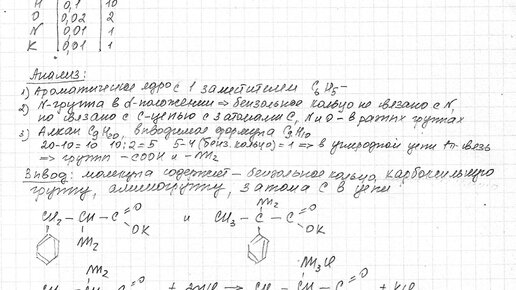 H | 0,1 | 10
O | 0,02 | 2
N | 0,01 | 1
K | 0,01 | 1
Анализ:
1) Ароматическое ядро с 1 заместителем C6H5–
2) N-группа в α-положении ⇒ бензольное кольцо не связано с N,
но связано с C-цепью с 3 атомами C, N и O – в разных группах
3) Алкан C9H20, вводимая формула C9H10
20-10=10 10:2=5 5-4 (бенз. кольцо)=1 ⇒ в углеродной цепи 1π-связь
⇒ групп –COOH и –NH2
Вывод: молекула содержит – бензольное кольцо, карбоксильную
группу, аминогруппу, 3 атома C в цепи
CH2–CH–C O OK NH2 и CH3–C–C O OK NH2
NH2 O NH3Cl O
CH C + 2HCl → CH C + KCl